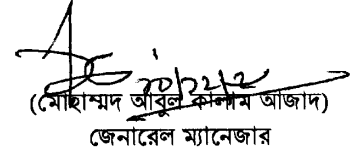 ২০/১২/২
(মোহাম্মদ আবুল কালাম আজাদ)
জেনারেল ম্যানেজার